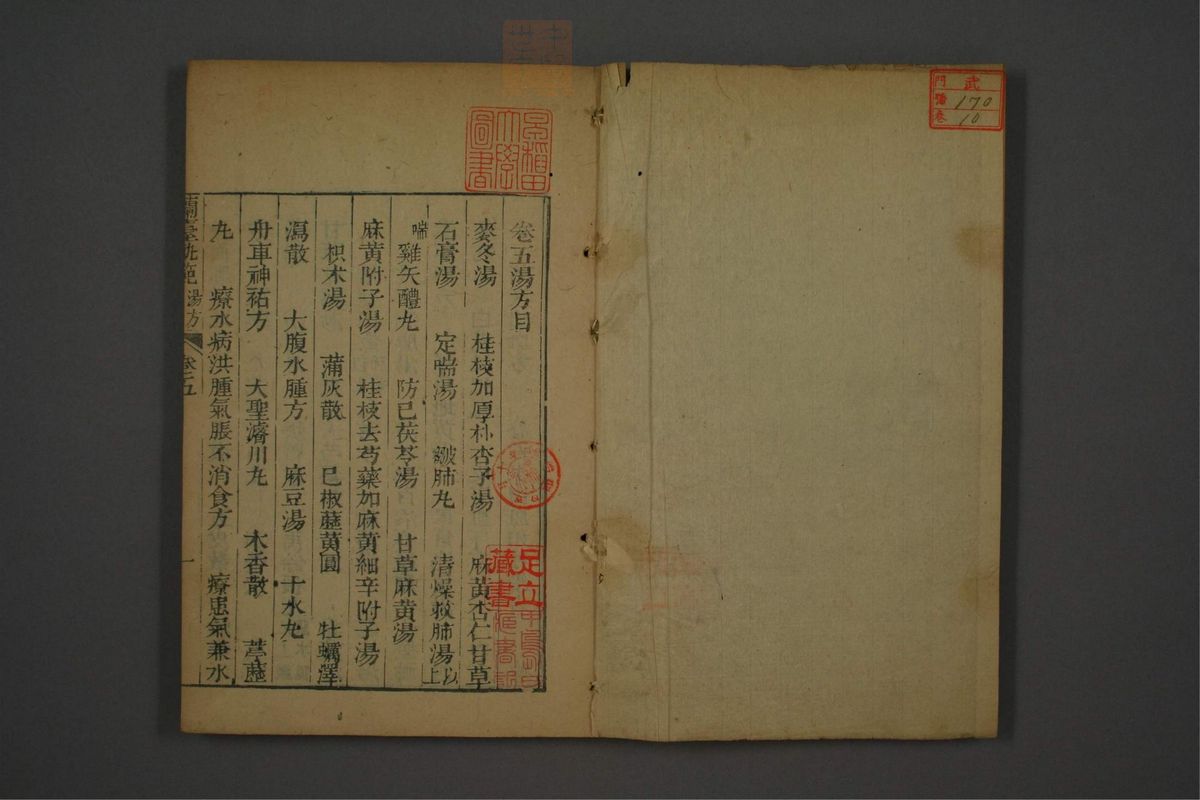 武
門 號 卷
170
10
早稻田大學圖書
卷五湯方目
麥冬湯 桂枝加厚朴杏子湯 麻黃杏仁甘草
石膏湯 定喘湯 皺肺丸 清燥救肺湯 以上
喘 雞矢醴丸 防已茯苓湯 甘草麻黃湯
麻黃附子湯 桂枝去芍藥加麻黃細辛附子湯
枳朮湯 蒲灰散 已椒藶黃圓 牡蠣澤
瀉散 大腹水腫方 麻豆湯 十水丸
舟車神祐方 大聖濬川丸 木香散 葶藶
丸 療水病洪腫氣脹不消食方 療患氣兼水
湯方 卷五 一
足立藏書